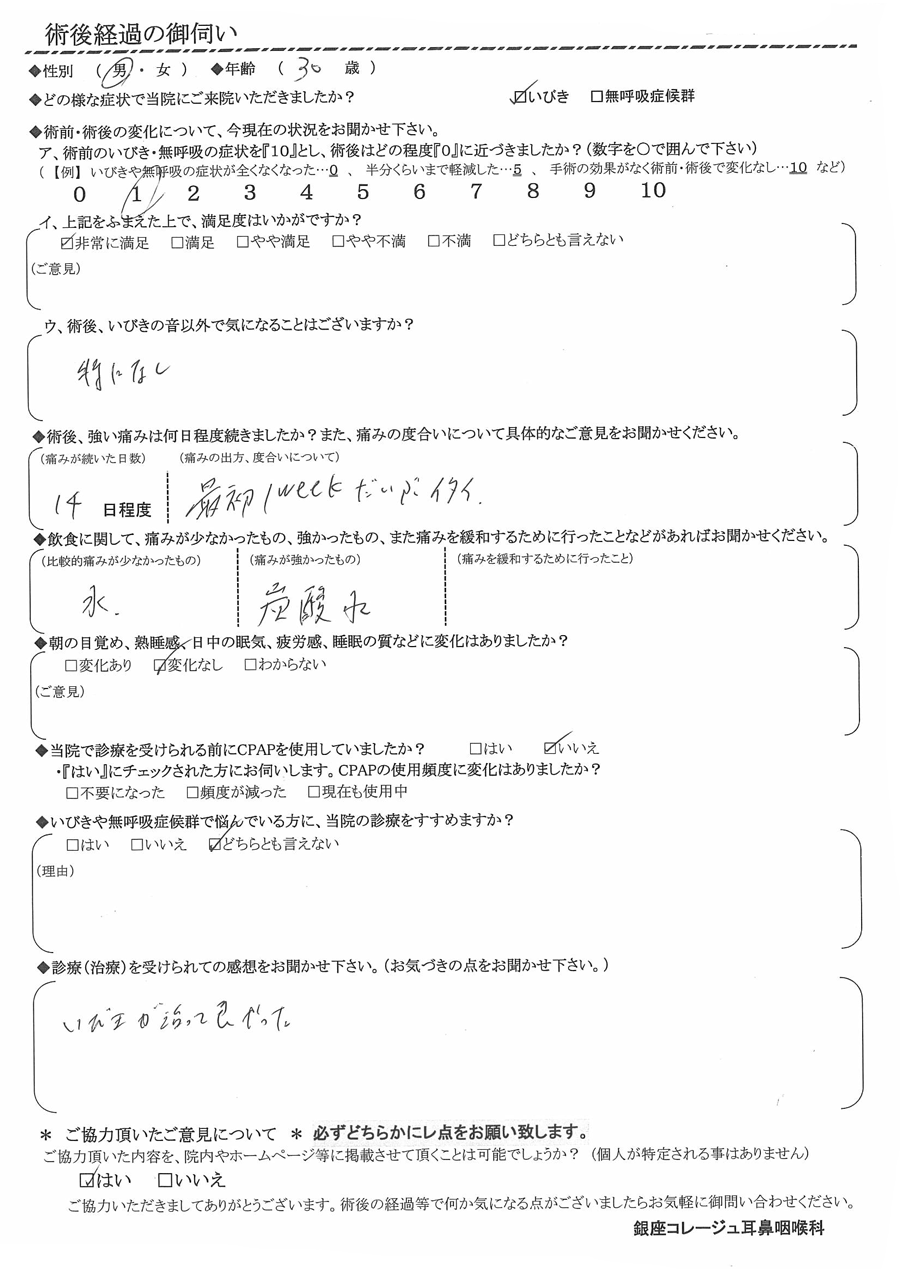 術後経過の御伺い
◆性別 （ 男 ・ 女 ） ◆年齢 （ 30 歳 ）
◆どの様な症状で当院にご来院いただきましたか？ ☑いびき □無呼吸症候群
◆術前・術後の変化について、今現在の状況をお聞かせ下さい。
ア、術前のいびき・無呼吸の症状を『10』とし、術後はどの程度『0』に近づきましたか？（数字を〇で囲んで下さい）
（【例】 いびきや無呼吸の症状が全くなくなった…0 、 半分くらいまで軽減した…5 、 手術の効果がなく術前・術後で変化なし…10 など）
0 1 2 3 4 5 6 7 8 9 10
イ、上記をふまえた上で、満足度はいかがですか？
☑非常に満足 □満足 □やや満足 □やや不満 □不満 □どちらとも言えない
（ご意見）
ウ、術後、いびきの音以外で気になることはございますか？
特になし
◆術後、強い痛みは何日程度続きましたか？また、痛みの度合いについて具体的なご意見をお聞かせください。
（痛みが続いた日数） （痛みの出方、度合いについて）
14 日程度 最初1weekだいぶイタイ.
◆飲食に関して、痛みが少なかったもの、強かったもの、また痛みを緩和するために行ったことなどがあればお聞かせください。
（比較的痛みが少なかったもの） （痛みが強かったもの） （痛みを緩和するために行ったこと）
水. 炭酸水
◆朝の目覚め、熟睡感、日中の眠気、疲労感、睡眠の質などに変化はありましたか？
□変化あり ☑変化なし □わからない
（ご意見）
◆当院で診療を受けられる前にCPAPを使用していましたか？ □はい ☑いいえ
・『はい』にチェックされた方にお伺いします。CPAPの使用頻度に変化はありましたか？
□不要になった □頻度が減った □現在も使用中
◆いびきや無呼吸症候群で悩んでいる方に、当院の診療をすすめますか？
□はい □いいえ ☑どちらとも言えない
（理由）
◆診療（治療）を受けられての感想をお聞かせ下さい。（お気づきの点をお聞かせ下さい。）
いびきが治って良かった
＊ ご協力頂いたご意見について ＊ 必ずどちらかにレ点をお願い致します。
ご協力頂いた内容を、院内やホームページ等に掲載させて頂くことは可能でしょうか？ （個人が特定される事はありません）
☑はい □いいえ
ご協力いただきましてありがとうございます。術後の経過等で何か気になる点がございましたらお気軽に御問い合わせください。
銀座コレージュ耳鼻咽喉科